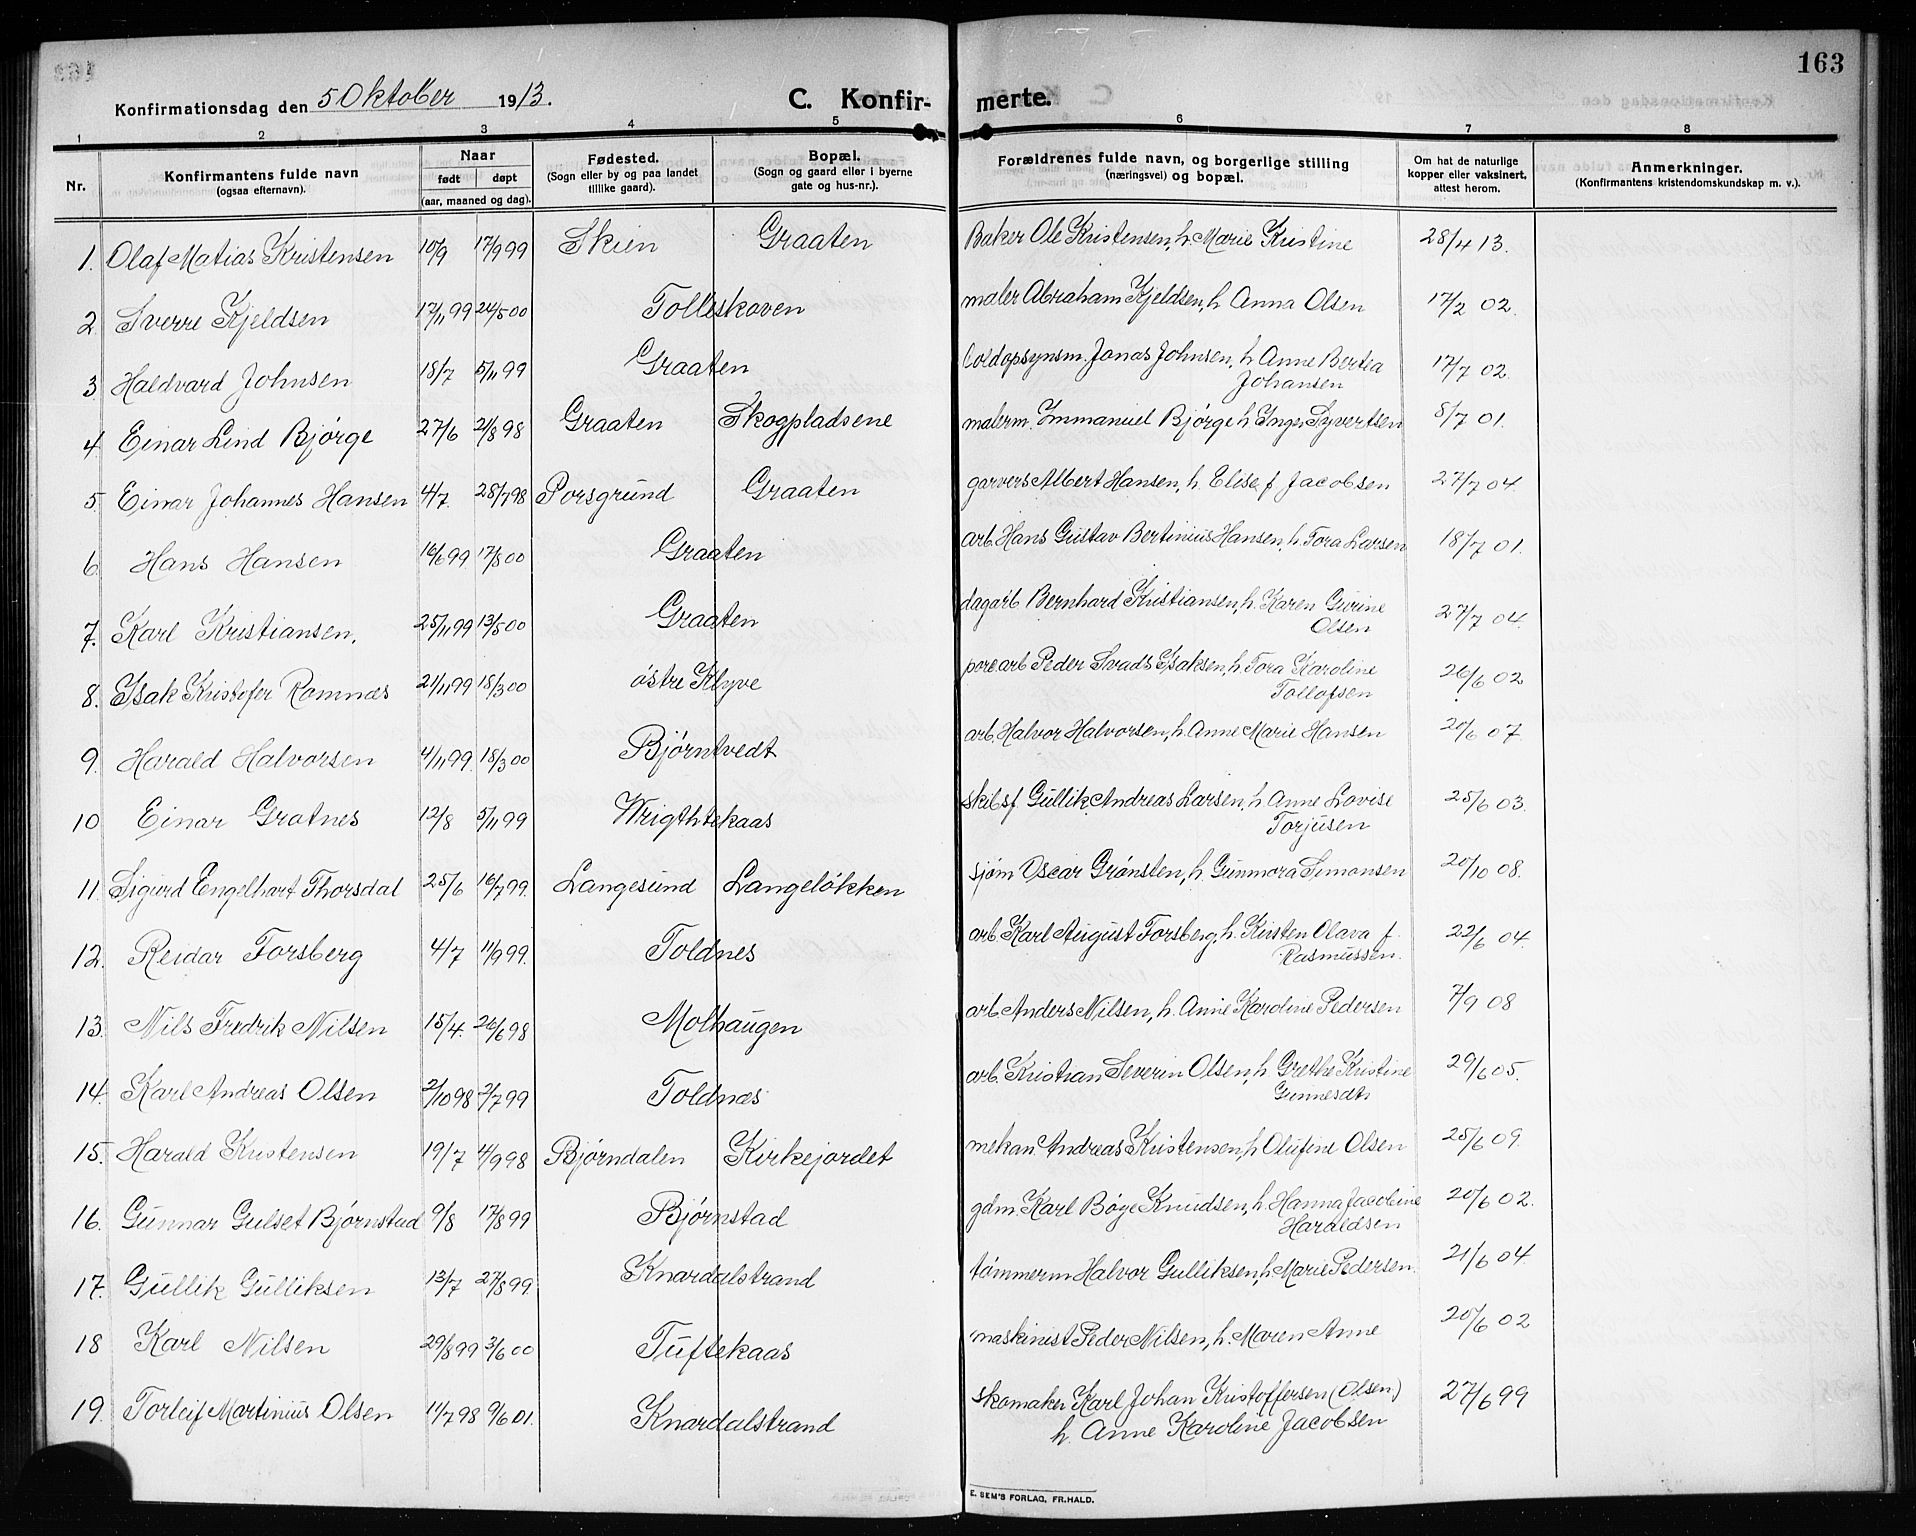 163
Konfirmationsdag den 5 Oktober 1913.
C. Konfir- merte.
1 2 3 4 5 6 7 8
Nr.
Konfirmantens fulde navn
(ogsaa efternavn).
Naar
født døpt
(aar, maaned og dag).
Fødested.
(Sogn eller by og paa landet
tillike gaard).
Bopæl.
(Sogn og gaard eller i byerne
gate og hus-nr.).
Forældrenes fulde navn, og borgerlige stilling
(næringsvei) og bopæl.
Om hat de naturlige
kopper eller vaksinert,
attest herom.
Anmerkninger.
(Konfirmantens kristendomskundskap m. v.).
1. Olaf Matias Kristensen 10/9 17/9 99 Skien Graaten Baker Ole Kristensen, h. Marie Kristine 28/4 13.
2 Sverre Kjeldsen 17/11 99 24/5 00 Tolleskoven maler Abraham Kjeldsen, h Anna Olsen 17/2 02.
3 Haldvard Johnsen 18/7 5/11 99 Graaten toldopsynsm. Jonas Johnsen, h Anne Bertea
Johansen 17/7 02.
4 Einar Lind Bjørge 27/6 21/8 98 Graaten Skogpladsene malerm. Immanuel Bjørge h Inger Syvertsen 8/7 01.
5 Einar Johannes Hansen 4/7. 28/7 98 Porsgrund Graaten garvers Albert Hansen, h. Elise f Jacobsen 27/7 04.
6 Hans Hansen 16/6 99 17/8 00 Graaten arb. Hans Gustav Bertinius Hansen, h. Tora Larsen 18/7 01.
7. Karl Kristiansen. 25/11 99 13/5 00 Graaten dagarb Bernhard Kristiansen, h. Karen Gurine
Olsen 27/7 04.
8. Isak Kristofer Romnæs 21/11 99 18/3 00 østre Klyve porc arb Peder Svads Isaksen, h. Tora Karoline
Tollofsen 26/6 02
9. Harald Halvorsen 4/11 99. 18/3 00 Bjørntvedt arb. Halvor Halvorsen, h. Anne Marie Hansen 20/6 07.
10 Einar Grotnes 12/8 5/11 99 Wrigthtekaas skibsf. Gullik Andreas Larsen, h Anne Lovise
Torjusen 25/6 03.
11. Sigurd Engelhart Thorsdal 25/6 16/7 99. Langesund Langeløkken sjøm Oscar Grønsten, h Gunmora Simonsen 20/10 08.
12. Reidar Forsberg 4/7 11/9 99. Toldnes arb. Karl August Forsberg, h. Kirsten Olava f.
Rasmussen. 22/6 04.
13. Nils Fredrik Nilsen 15/4. 26/6 98 Molhaugen arb. Anders Nilsen, h. Anne Karoline Pedersen 7/9 08
14. Karl Andreas Olsen 2/10 98 2/7 99 Toldnæs arb. Kristian Severin Olsen, h. Grethe Kristine
Gunnesdtr 29/6 05.
15. Harald Kristensen 19/7 4/9 98 Bjørndalen Kirkejordet mekan. Andreas Kristensen, h Olufine Olsen 25/6 09.
16. Gunnar Gulset Bjørnstad 9/8 17/8 99 Bjørnstad gdm. Karl Bøye Knudsen, h. Hanna Jacobine
Haraldsen 20/6 02.
17. Gullik Gulliksen 13/7 27/8 99. Knardalstrand tømmerm Halvor Gulliksen, h Marie Pedersen. 21/6 04.
18 Karl Nilsen 29/8 99 3/6 00 Tuftekaas maskinist Peder Nilsen, h. Maren Anne 20/6 02
19. Torleif Martinius Olsen 11/7 98 9/6 01. Knardalstrand skomaker Karl Johan Kristoffersen (Olsen)
h. Anne Karoline Jacobsen 27/6 99
E. SEM'S FORLAG, FR.HALD.